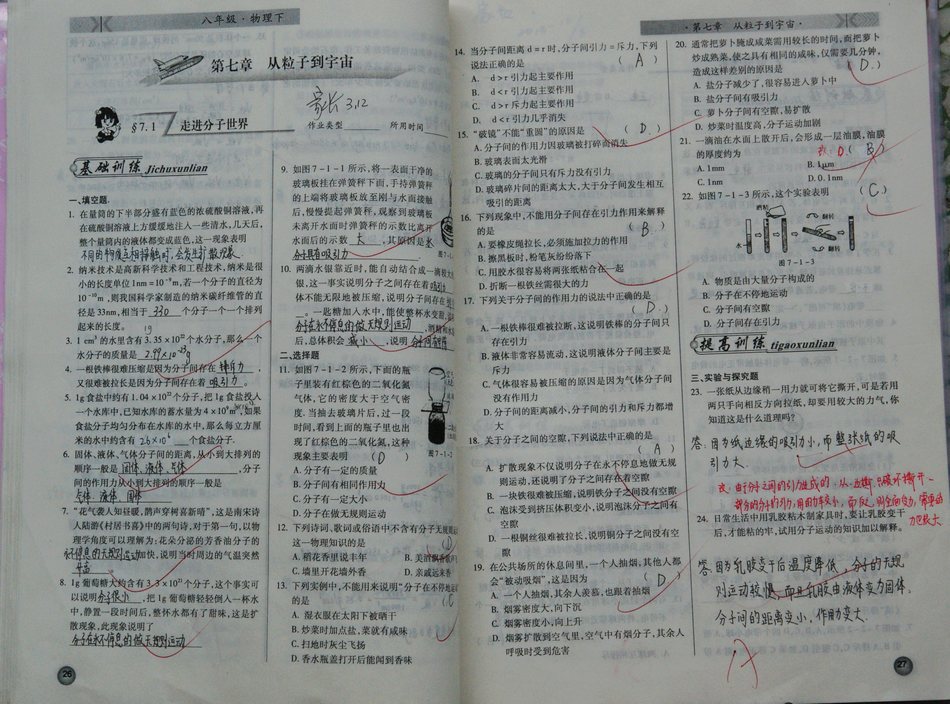 八年级·物理下
第七章 从粒子到宇宙
家长 3.12
§7.1 走进分子世界
作业类型 所用时间
基础训练 Jichuxunlian
一、填空题
1. 在量筒的下半部分盛有蓝色的浓硫酸铜溶液,再
在硫酸铜溶液上方缓缓地注入一些清水,几天后,
整个量筒内的液体都变成蓝色,这一现象表明
不同的物质互相接触时,会发生扩散现象.
2. 纳米技术是高新科学技术和工程技术,纳米是很
小的长度单位1nm=10⁻⁹m,若一个分子的直径为
10⁻¹⁰m,则我国科学家制造的纳米碳纤维管的直
径是33nm,相当于 330 个分子一个一个排列
起来的长度。
19
3. 1 cm³的水里含有3.35×10²²个水分子,那么一个
水分子的质量是 2.99×10⁻²³g
4. 一根铁棒很难压缩是因为分子间存在 排斥力,
又很难被拉长是因为分子间存在着 吸引力。
5. 1g食盐中约有1.04×10²²个分子,把1g食盐投入
一个水库中,已知水库的蓄水量为4×10⁹m³,如果
食盐分子均匀分布在水库的水中,那么每立方厘
米的水中约含有 2.6×10⁶ 个食盐分子.
6. 固体、液体、气体分子间的距离,从小到大排列的
顺序一般是 固体、液体、气体 ,分子
间的作用力从小到大排列的顺序一般是
气体、液体、固体
7. “花气袭人知昼暖,鹊声穿树喜新晴”,这是南宋诗
人陆游《村居书喜》中的两句诗,对于第一句,以物
理学角度可以理解为:花朵分泌的芳香油分子的
永不停息的无规则运动加快,说明当时周边的气温突然
升高
8. 1g葡萄糖大约含有3.3×10²¹个分子,这个事实可
以说明 分子很小 ,把1g葡萄糖轻轻倒入一杯水
中,静置一段时间后,整杯水都有了甜味,这是扩
散现象,此现象说明了
分子在永不停息的做无规则运动
26
9. 如图7-1-1所示,将一表面干净的
玻璃板挂在弹簧秤下面,手持弹簧秤
的上端将玻璃板放至刚与水面接触
后,慢慢提起弹簧秤,观察到玻璃板
未离开水面时弹簧秤的示数比离开
水面后的示数 大 ,其原因是水
分子具有吸引力
10. 两滴水银靠近时,能自动结合成一滴较大
银,这一事实说明分子之间存在着
体不能无限地被压缩,说明分子间存在
。一匙糖加入水中,能使整杯水变甜,
分子在永不停息的做无规则运动
后,总体积会 减小 ,说明 分子间有空隙
二、选择题
11. 如图7-1-2所示,下面的瓶
子里装有红棕色的二氧化氮
气体,它的密度大于空气密
度.当抽去玻璃片后,过一段
时间,看到上面的瓶子里也出
现了红棕色的二氧化氮,这种
现象主要表明 (D)
图7-1-2
A. 分子有一定的质量
B. 分子间有相同作用力
C. 分子有一定大小
D. 分子在做无规则运动
12. 下列诗词、歌词或俗语中不含有分子无规则运
这一物理知识的是 (D)
A. 稻花香里说丰年
C. 墙里开花墙外香 D. 亲戚远来香
13. 下列实例中,不能用来说明“分子在不停地运
的是 (C
A. 湿衣服在太阳下被晒干
B. 炒菜时加点盐,菜就有咸味
C. 扫地时灰尘飞扬
D. 香水瓶盖打开后能闻到香味
·第七章 从粒子到宇宙·
14. 当分子间距离d=r时,分子间引力=斥力,下列
说法正确的是 (A)
A. d>r引力起主要作用
B. d<r引力起主要作用
C. d>r斥力起主要作用
D. d<r引力几乎消失
15. “破镜”不能“重圆”的原因是 (D.)
A. 分子间的作用力因玻璃被打碎而消失
B. 玻璃表面太光滑
C. 玻璃的分子间只有斥力没有引力
D. 玻璃碎片间的距离太大,大于分子间发生相互
吸引的距离
16. 下列现象中,不能用分子间存在引力作用来解释
的是 (B)
A. 要橡皮绳拉长,必须施加拉力的作用
B. 擦黑板时,粉笔灰纷纷落下
C. 用胶水很容易将两张纸粘合在一起
D. 折断一根铁丝需很大的力
17. 下列关于分子间的作用力的说法中正确的是
(D.)
A. 一根铁棒很难被拉断,这说明铁棒的分子间只
存在引力
B. 液体非常容易流动,这说明液体分子间主要是
斥力
C. 气体很容易被压缩的原因是因为气体分子间
没有作用力
D. 分子间的距离减小,分子间的引力和斥力都增
大
18. 关于分子之间的空隙,下列说法中正确的是
(A)
A. 扩散现象不仅说明分子在水不停息地做无规
则运动,还说明了分子之间存在着空隙
B. 一块铁很难被压缩,说明铁分子之间没有空隙
C. 泡沫受到挤压体积变小,说明泡沫分子之间有
空隙
D. 一根铜丝很难被拉长,说明铜分子之间没有空
隙
19. 在公共场所的休息间里,一个人抽烟,其他人都
会“被动吸烟”,这是因为 (D)
A. 一个人抽烟,其余人羡慕,也跟着抽烟
B. 烟雾密度大,向下沉
C. 烟雾密度小,向上升
D. 烟雾扩散到空气里,空气中有烟分子,其余人
呼吸时受到危害
20. 通常把萝卜腌成咸菜需用较长的时间,而把萝卜
炒成熟菜,使之具有相同的咸味,仅需要几分钟,
造成这样差别的原因是 (D.)
A. 盐分子减少了,很容易进入萝卜中
B. 盐分子间有吸引力
C. 萝卜分子间有空隙,易扩散
D. 炒菜时温度高,分子运动加剧
21. 一滴油在水面上散开后,会形成一层油膜,油膜
的厚度约为 (B)
A. 1mm B. 1μm
C. 1nm D. 0.1nm
22. 如图7-1-3所示,这个实验表明 (C)
酒精
翻转 翻转
水
图7-1-3
A. 物质是由大量分子构成的
B. 分子在不停地运动
C. 分子间有空隙
D. 分子间存在引力
提高训练 tigaoxunlian
三、实验与探究题
23. 一张纸从边缘稍一用力就可将它撕开,可是若用
两只手向相反方向拉纸,却要用较大的力气,你
知道这是什么道理吗?
答.因为纸边缘的吸引力小,而整张纸的吸
引力大.
24. 日常生活中用乳胶粘木制家具时,要让乳胶变干
后,才能粘的牢,试用分子运动的知识加以解释。
答.因为乳胶变干后温度降低,分子的无规
则运动放慢,而且乳胶由液体变为固体,
分子间的距离变小,作用力变大.
27